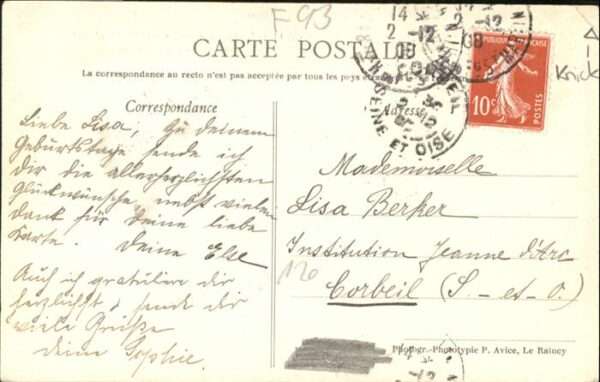 F 93
CARTE POSTALE
La correspondance au recto n'est pas acceptée par tous les pays
Correspondance
Adresse
Liebe Lisa, Zu deinem
Geburtstage sende ich
dir die allerherzlichsten
Glückwünsche, nebst vielen
Dank für deine liebe
Karte. Deine Else
Auch ich gratuliere dir
herzlichst, sende dir
viele Grüße
deine Sophie.
RÉPUBLIQUE FRANÇAISE
10c
POSTES
Knick
14
2 -12
08
SEINE ET OISE
Mademoiselle
Lisa Berker
Institution Jeanne d'Arc
Corbeil (S.-et-O.)
120
Photogr.-Phototypie P. Avice, Le Raincy